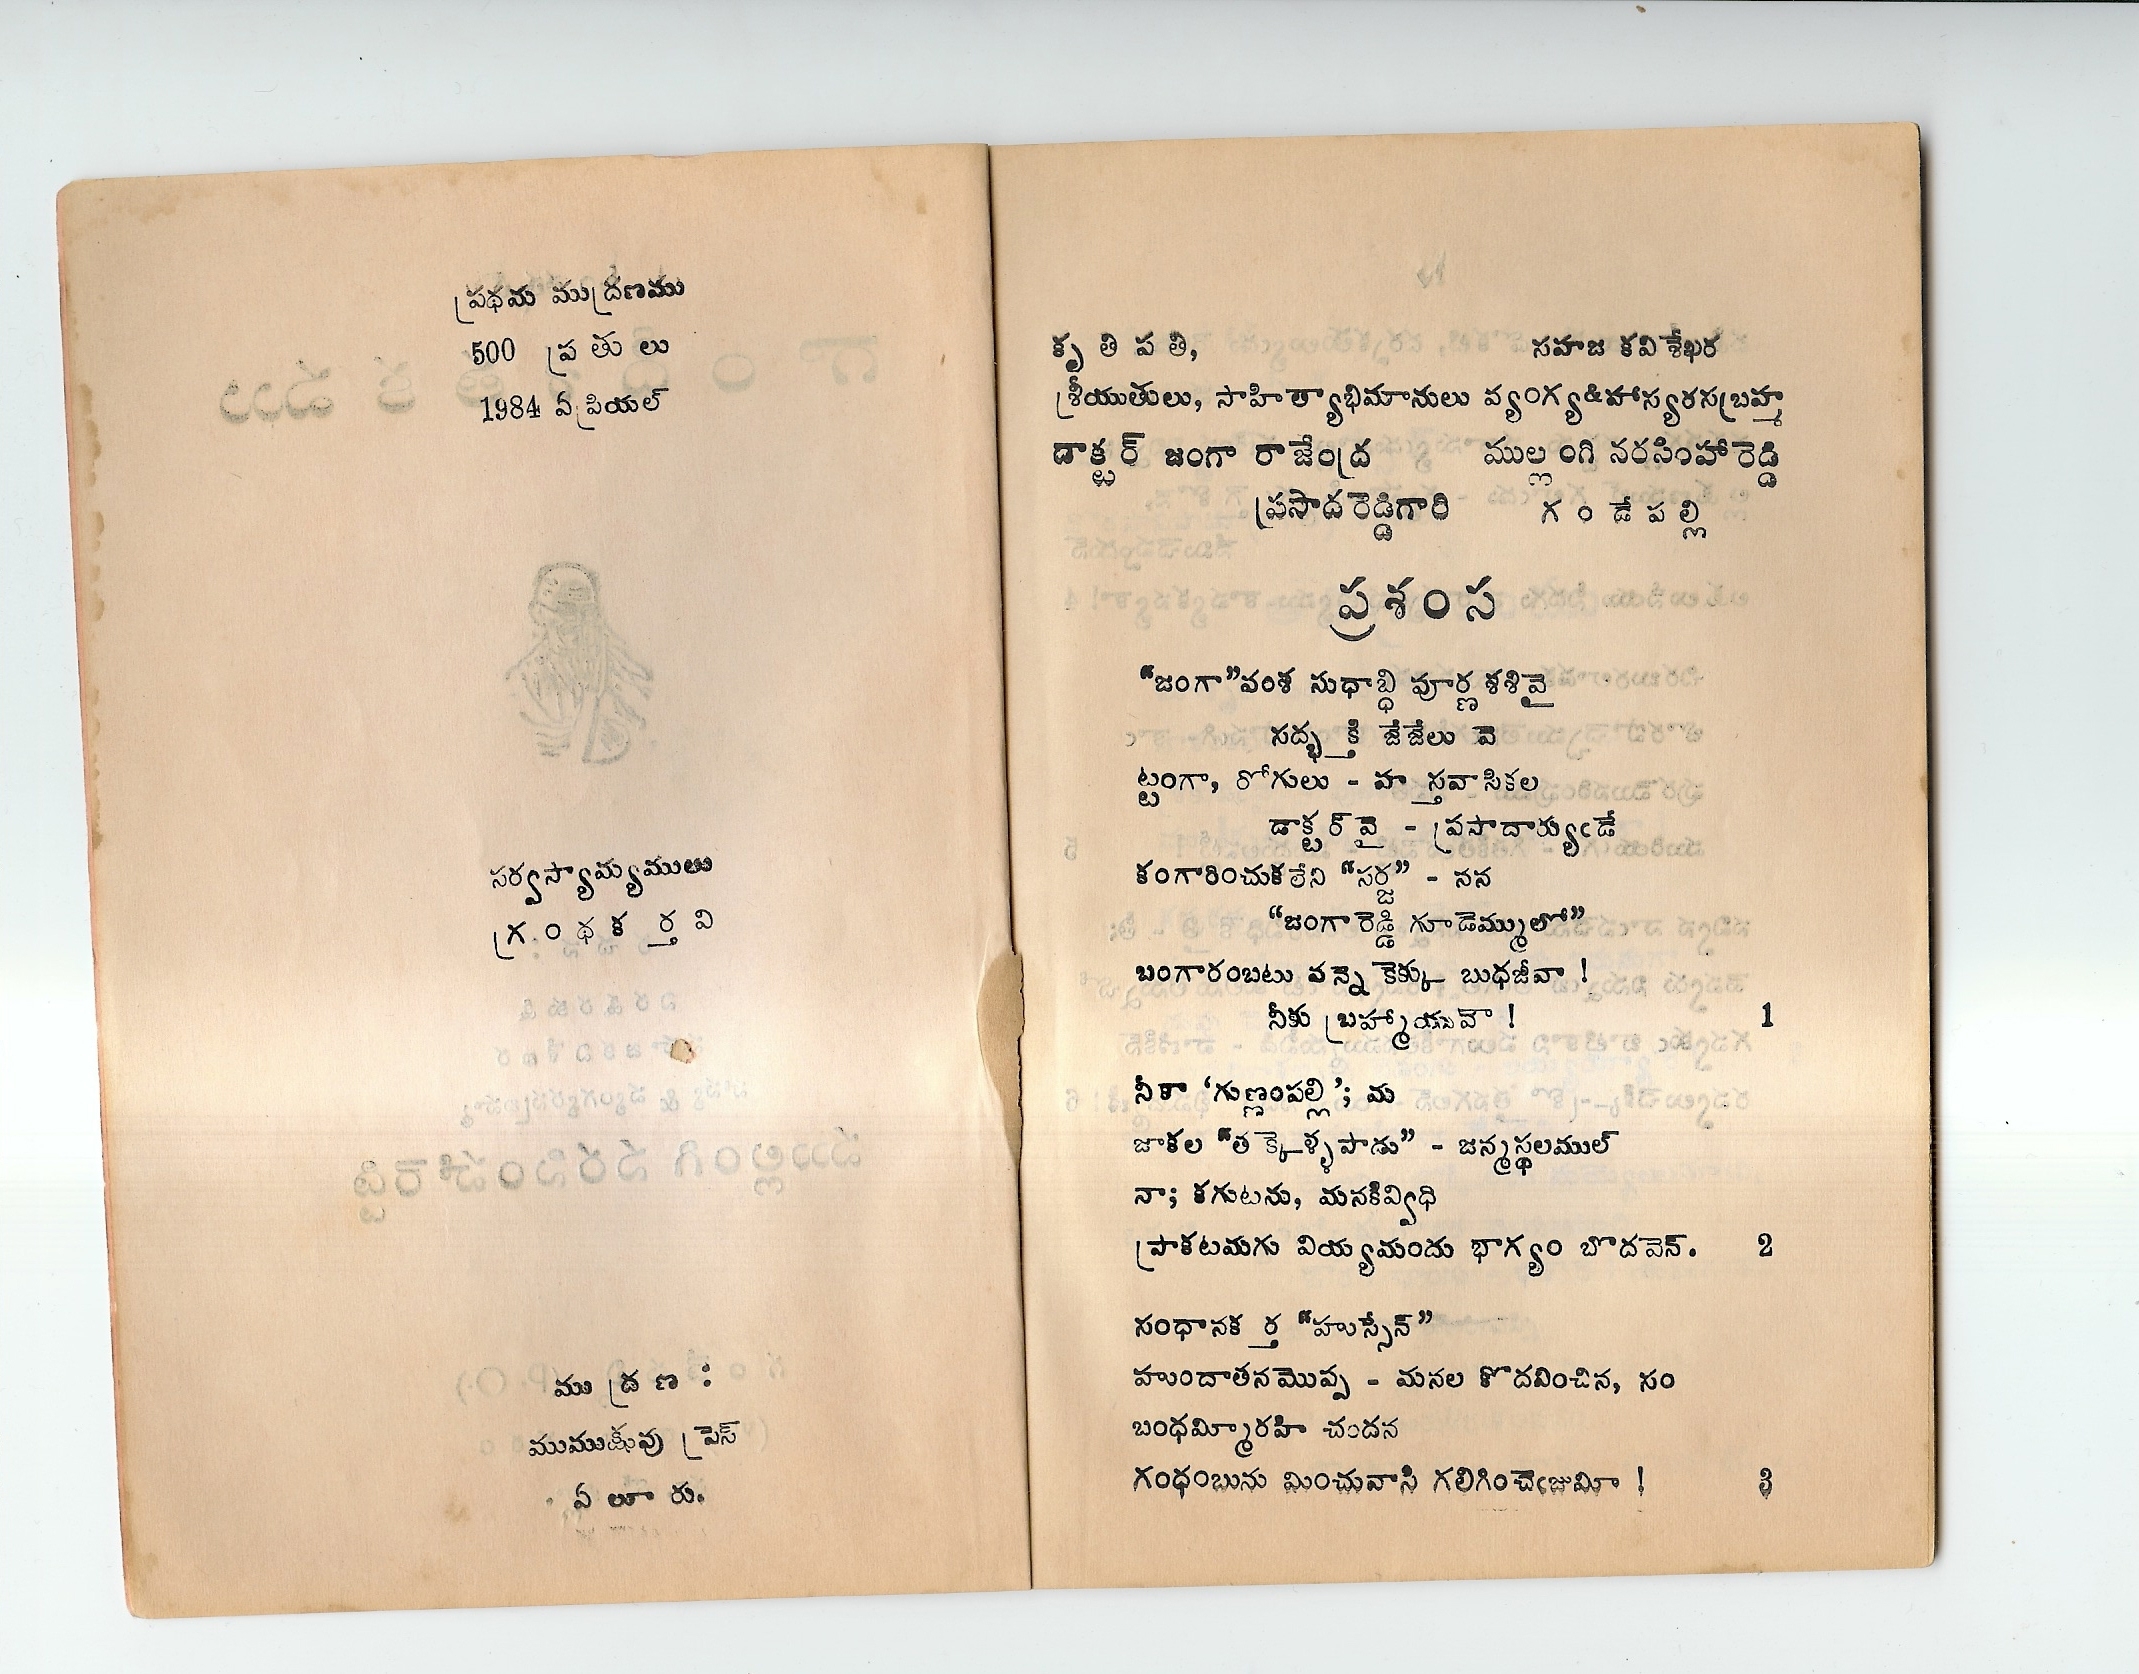 ప్రథమ ముద్రణము
500 ప్రతులు
1984 ఏప్రియల్
సర్వస్వామ్యములు
గ్రంథకర్తవి
ముద్రణ :
ముముక్షువు ప్రెస్
ఏలూరు.
కృతిపతి, సహజ కవిశేఖర
శ్రీయుతులు, సాహిత్యాభిమానులు వ్యంగ్య&హాస్యరసబ్రహ్మ
డాక్టర్ జంగా రాజేంద్ర ముల్లంగి నరసింహారెడ్డి
ప్రసాదరెడ్డిగారి గండేపల్లి
ప్రశంస
“జంగా”వంశ సుధాబ్ధి పూర్ణ శశివై
సద్భక్తి జేజేలు వె
ట్టంగా, రోగులు - హస్తవాసికల
డాక్టర్‌వై - ప్రసాదార్యుఁడే
కంగారించుకలేని “సర్జ” - నన
“జంగారెడ్డి గూడెమ్ములో”
బంగారంబటు వన్నె కెక్కు బుధజీవా !
నీకు బ్రహ్మాయువౌ ! 1
నీకా ‘గుణ్ణంపల్లి’; మ
జాకల “తక్కెళ్ళపాడు” - జన్మస్థలముల్
నా; కగుటను, మనకివ్విధి
ప్రాకటమగు వియ్యమందు భాగ్యం బొదవెన్. 2
సంధానకర్త “హుస్సేన్”
హుందాతనమొప్ప - మనల కొదవించిన, సం
బంధమ్మిారహి చందన
గంధంబును మించువాసి గలిగించెఁజుమీ ! 3